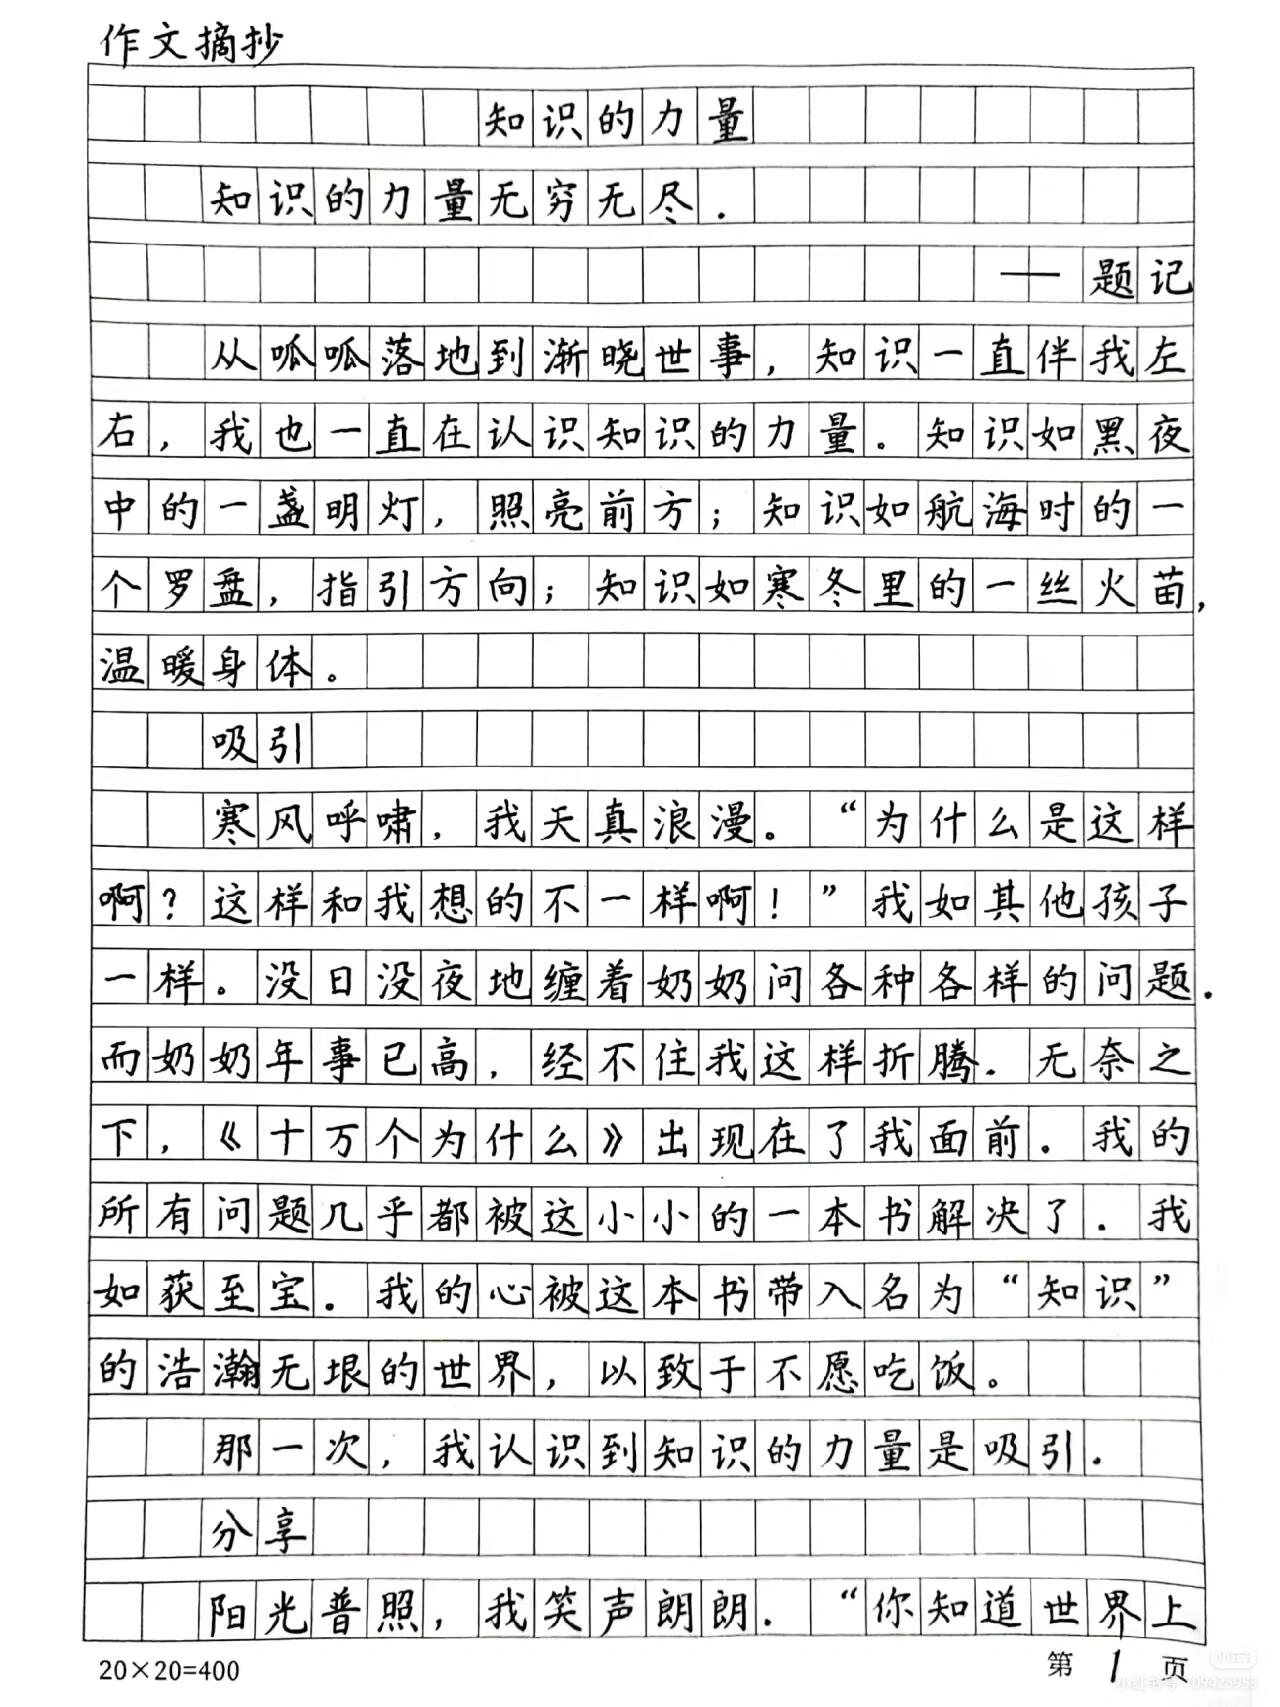 作文摘抄
知识的力量
知识的力量无穷无尽.
——题记
从呱呱落地到渐晓世事，知识一直伴我左
右，我也一直在认识知识的力量。知识如黑夜
中的一盏明灯，照亮前方；知识如航海时的一
个罗盘，指引方向；知识如寒冬里的一丝火苗，
温暖身体。
吸引
寒风呼啸，我天真浪漫。“为什么是这样
啊？这样和我想的不一样啊！”我如其他孩子
一样。没日没夜地缠着奶奶问各种各样的问题.
而奶奶年事已高，经不住我这样折腾.无奈之
下，《十万个为什么》出现在了我面前.我的
所有问题几乎都被这小小的一本书解决了.我
如获至宝.我的心被这本书带入名为“知识”
的浩瀚无垠的世界，以致于不愿吃饭。
那一次，我认识到知识的力量是吸引.
分享
阳光普照，我笑声朗朗.“你知道世界上
20×20=400
第 1 页
小红书
小红书号：709425953